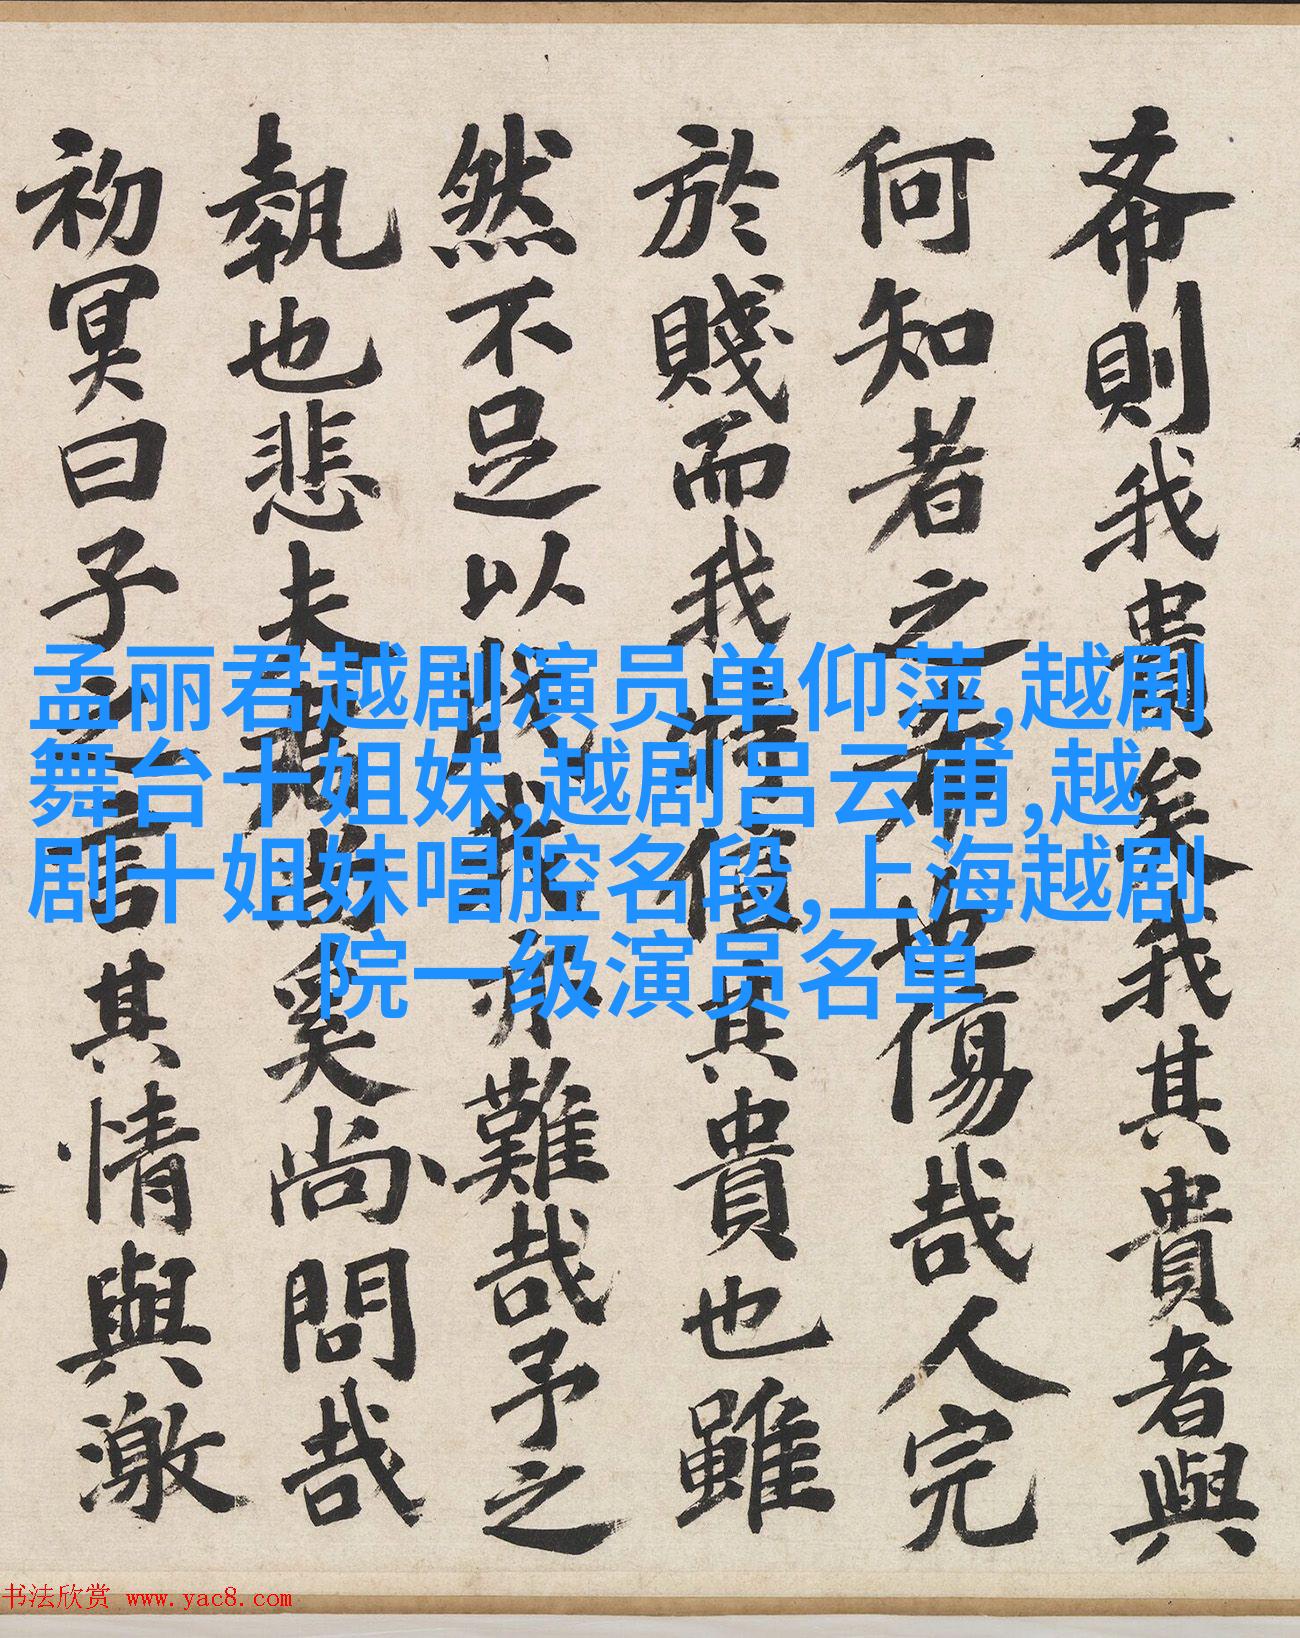 希則我貴矣我其貴者與
何知者之希也傷哉人完
於賤而我值其貴也雖
然不足以我難哉予之
執也悲夫奚尚問哉
初冥曰子之言其情與激
孟丽君越剧演员单仰萍,越剧
舞台十姐妹,越剧吕云甫,越
剧十姐妹唱腔名段,上海越剧
院一级演员名单
书法欣赏 www.yac8.com